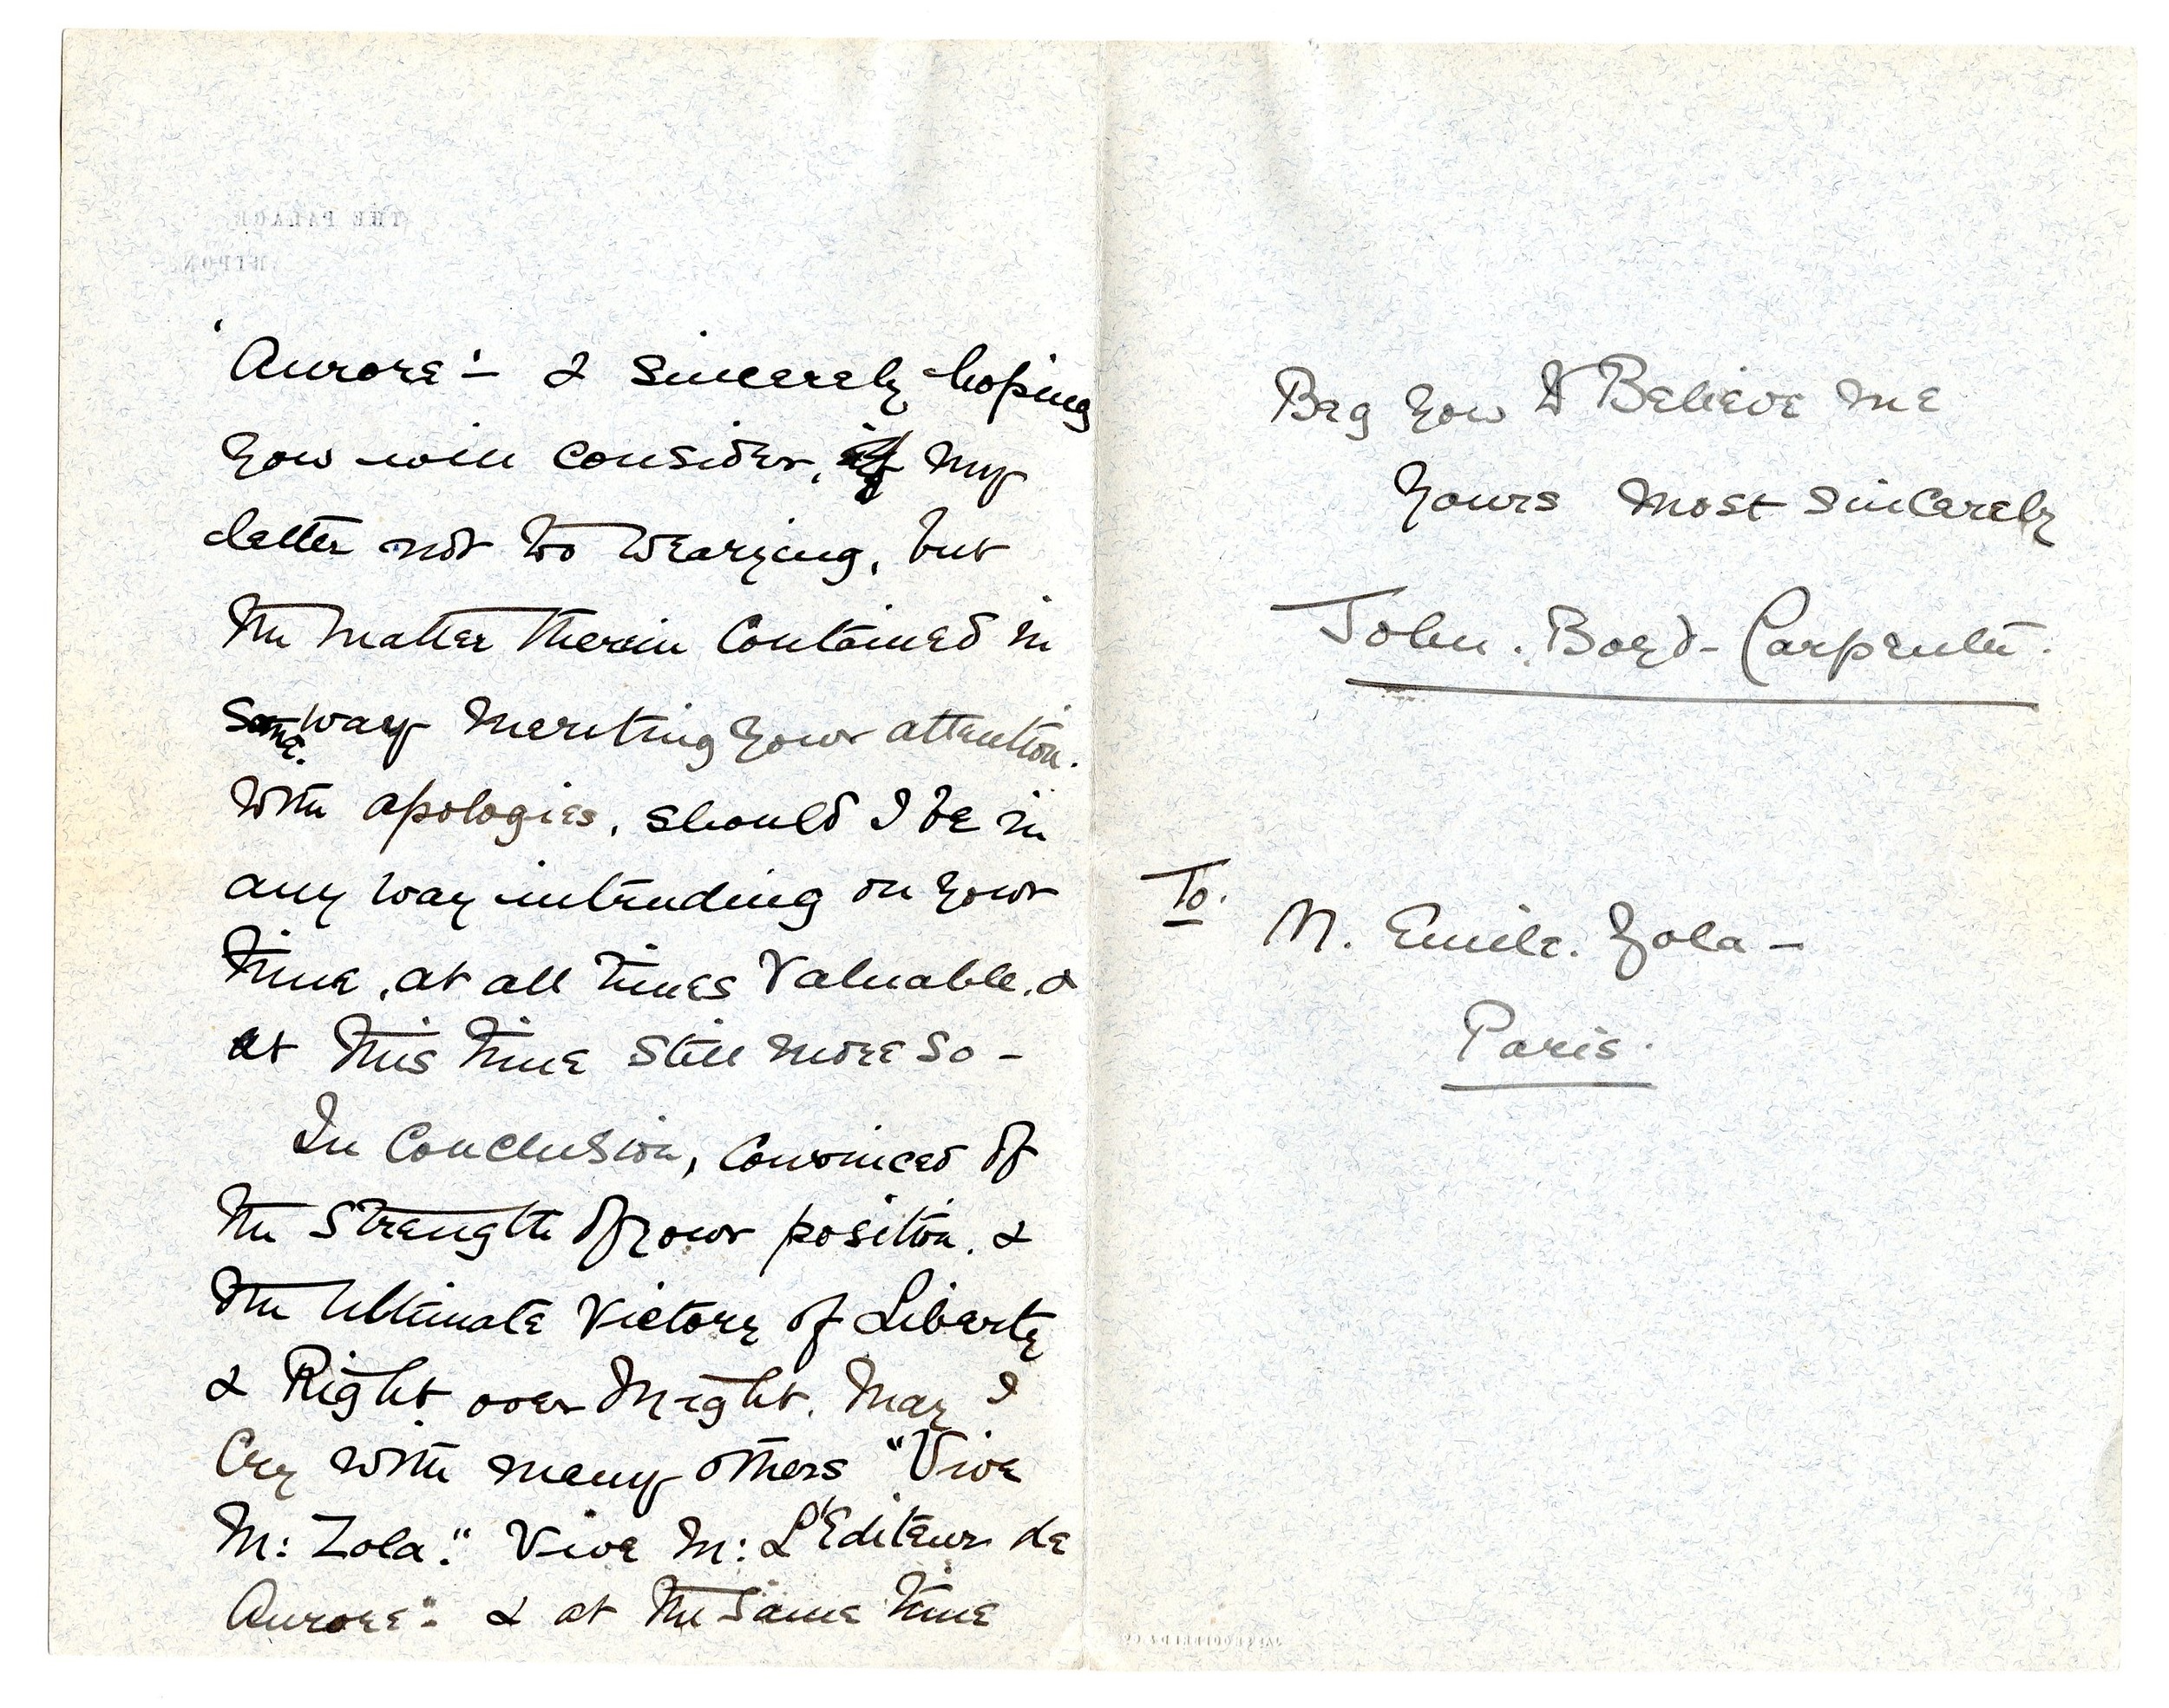 THE PALACE
RIPON
'Aurore'- & Sincerely hoping
you will consider, if my
letter not too wearying, but
the matter therein contained in
some way meriting your attention.
With apologies, should I be in
any way intruding on your
time, at all times valuable, &
at this time still more so -
In Conclusion, Convinced of
the Strength of your position, &
the Ultimate Victory of Liberty
& Right over Might. May I
Cry with many others "Vive
M: Zola." Vive M: L'Editeur de
Aurore": & at the Same time
Beg you to Believe me
Yours Most Sincerely
John. Boyd-Carpenter.
To. M. Emile. Zola -
Paris.